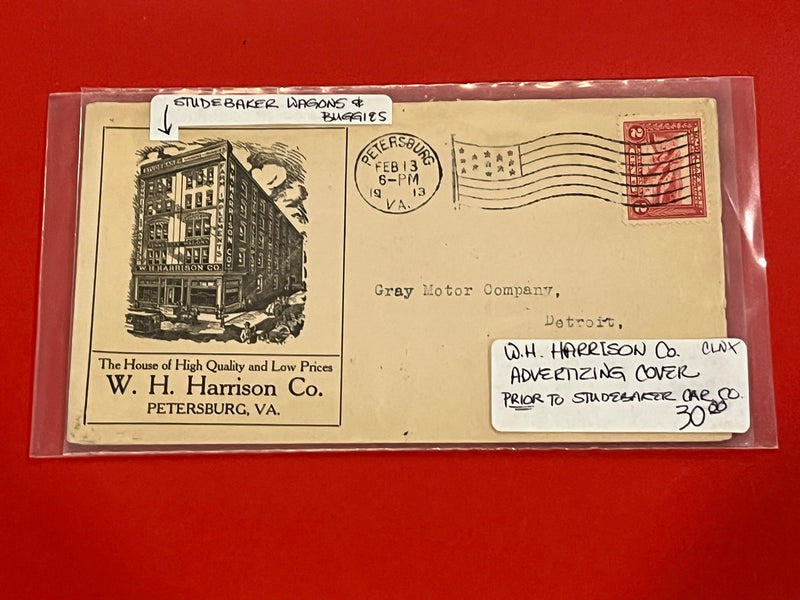 STUDEBAKER WAGONS &
BUGGIES
STUDEBAKER
W. H. HARRISON CO.
W. H. HARRISON CO.
The House of High Quality and Low Prices
W. H. Harrison Co.
PETERSBURG, VA.
PETERSBURG
FEB 13
6-PM
19 13
VA.
2 2
Gray Motor Company,
Detroit,
W.H. HARRISON CO. CLNX
ADVERTIZING COVER
PRIOR TO STUDEBAKER CAR CO.
30.00